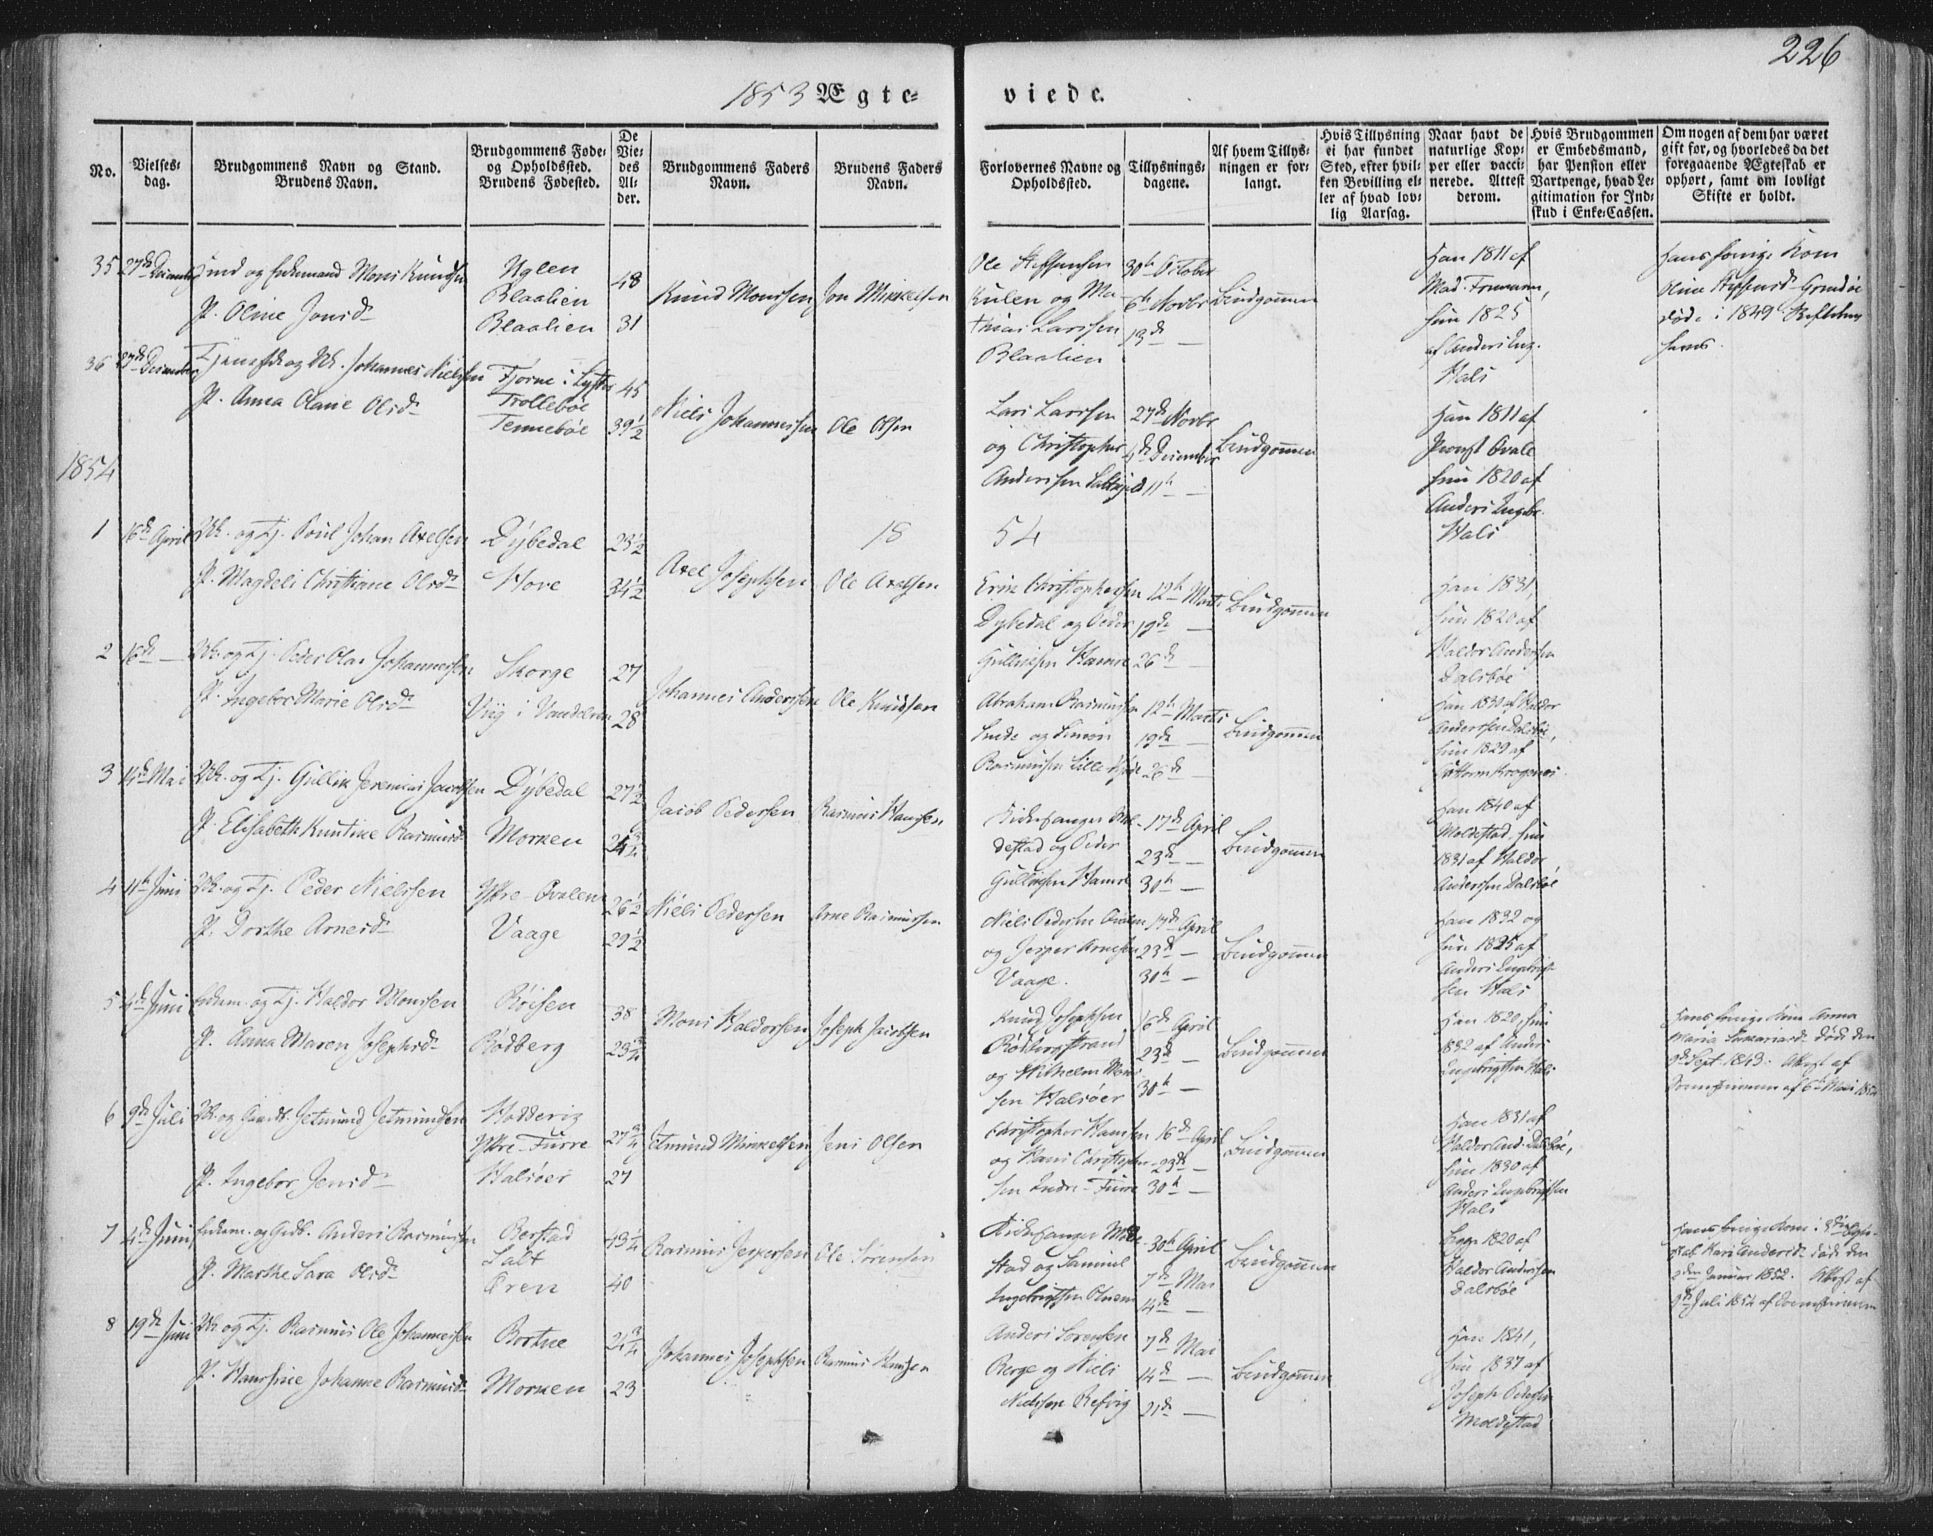 226
1853 Ægte-
viede.
No.
Vielses-
dag.
Brudgommens Navn og Stand.
Brudens Navn.
Brudgommens Føde-
og Opholdssted.
Brudens Fødested.
De
Vie-
des
Al-
der.
Brudgommens Faders
Navn.
Brudens Faders
Navn.
Forlovernes Navne og
Opholdssted.
Tillysnings-
dagene.
Af hvem Tillys-
ningen er for-
langt.
Hvis Tillysning
ei har fundet
Sted, efter hvil-
ken Bevilling el-
ler af hvad lov-
lig Aarsag.
Naar havt de
naturlige Kop-
per eller vacci-
nerede. Attest
derom.
Hvis Brudgommen
er Embedsmand,
har Pension eller
Vartpenge, hvad Le-
gitimation for Ind-
skud i Enke-Cassen.
Om nogen af dem har været
gift før, og hvorledes da det
foregaaende Ægteskab er
ophørt, samt om lovligt
Skifte er holdt.
35 27de December
og Enkemand Mons Knudsen
P. Oline Jonsd
Uglen
Blaalien
Blaalien
48
31
Knud Monssen
Jon Mikkelsen
Ole Steffensen
Kulen og Ma-
thias Larssen
Blaalien
30th October
6th Novbr
13de —
Brudgommen
Han 1811 af
Mad. Frumann,
hun 1825
af Anders Ing.
Hals
Hans forrige Kone
Oline
døde i 1849
36 27de December
og Uk. Johannes Nielsen
P. Anna Olane Olsd
Fjørne i Lyster
Trollebøe
Tennebøe
45
39½
Niels Johannessen
Ole Olsen
Lars Larssen
og Christopher
Andersen
27de Novbr
4de December
11th —
Brudgommen
Han 1811 af
Provst Qvale
hun 1820 af
Anders Ingbr.
Hals
1854
18 54
1 16de April
Uk. og Tj. Poul Johan Axelsen
P. Magdeli Christiane Olsd
Dybedal
Hove
23½
34½
Axel Josephsen
Ole Axelsen
Erik Christophersen
Dybedal og Peder
Gulliksen Hamre
12th Marts
19de —
26de —
Brudgommen
Han 1831,
hun 1820 af
Haldor Andersen
Dalsbøe
2 16de —
Uk. og Tj. Peder Olai Johannessen
P. Ingebor Marie Olsd
Skorge
Viig i Vandelven
27
28
Johannes Anderssen
Ole Knudsen
Abraham Rasmussen
og Simon
Rasmussen Lille
12th Marts
19de —
26de —
Brudgommen
Han 1830 af Haldor
Anderssen Dalsbøe,
hun 1829 af
Guttorm Krogenæs
3 14de Mai
Uk. og Tj. Gullik Jeremias Jacobsen
P. Elisabeth Knutine Rasmusd
Dybedal
Morken
27½
Jacob Pedersen
Rasmus Hanssen
Kirkesanger Mol-
destad og Peder
Gulliksen Hamre
17de April
23de —
30th —
Brudgommen
Han 1840 af
Moldestad, hun
1831 af Haldor
Anderssen Dalsbøe
4 11th Juni
Uk. og Tj. Peder Nielssen
P. Dorthe Arnesd
Ytre-Qvalen
Vaage
26½
29½
Niels Pedersen
Arne Rasmussen
Niels Pedersen Qvalen
og Jesper Arnesen
Vaage.
17de April
23de —
30th —
Brudgommen
Han 1832 og
hun 1825 af
Anders Ingebrigt-
sen Hals
5 4de Juni
Enkem. og Tj. Haldor Monsen
P. Anna Maren Josephsd
Røisen
Rødberg
38
23¾
Mons Haldorsen
Joseph Jacobsen
Knud Josephsen
Rødbergstrand
og Wilhelm Mons-
sen Halsøer
16de April
23de —
30th —
Brudgommen
Han 1820, hun
1832 af Anders
Ingebrigtsen Hals
Hans forrige Kone Anna
Maria Zakariasd døde den
9de Sept. 1843. Attest af
6te Mai
6 9de Juli
Uk. og Jetmund Jetmundsen
P. Ingebor Jensd
Hodderig
Ytre-Furre
Halsøer
27¾
27
Jetmund Mikkelsen
Jens Olsen
Christopher Hanssen
og Hans Christopher-
sen Indre-Furre
16de April
23de —
30th —
Brudgommen
Han 1831 af
Haldor And. Dalsbøe,
hun 1830 af
Anders Ingebrigtsen
Hals
7 4de Juni
Enkem. og Gdb. Anders Rasmussen
P. Marthe Sara Olsd
Berstad
Salt
Øren
43¼
40
Rasmus Jespersen
Ole Sørensen
Kirkesanger Molde-
stad og Samuel
Ingebrigtsen
30th April
7de Mai
14de —
Brudgommen
Begge 1820 af
Haldor Andersen
Dalsbøe
Hans forrige Kone i 3die Ægte-
skab Kari Andersd døde den
2den Januar 1852. Attest af
9de Juli 1852 af
8 19de Juni
Uk. og Tj. Rasmus Ole Johannessen
P. Hansine Johanne Rasmusd
Bortne
Morken
24¾
23
Johannes Josephsen
Rasmus Hanssen
Anders Sørensen
Berge og Niels
Nielssen Refvig
7de Mai
14de —
21de —
Brudgommen
Han 1841,
hun 1837 af
Joseph Pedersen
Moldestad